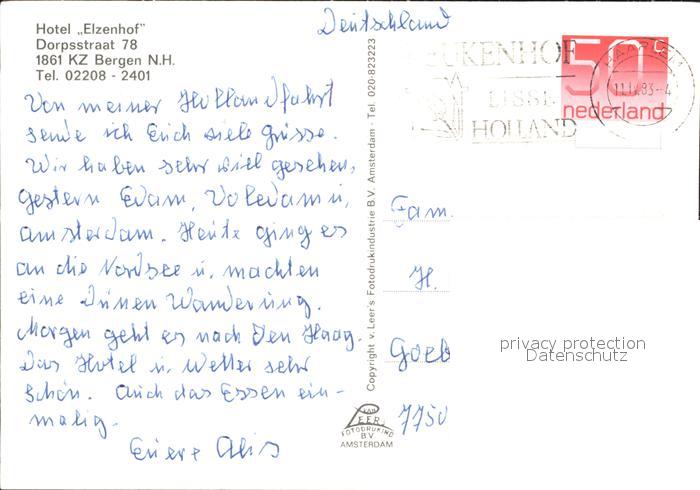 Hotel „Elzenhof"
Dorpsstraat 78
1861 KZ Bergen N.H.
Tel. 02208 - 2401
Von meiner Hollandfahrt
sende ich Euch viele Grüsse.
Wir haben sehr viel gesehen,
gestern Edam, Voledam u,
amsterdam. Heute ging es
an die Nordsee u. machten
eine Dünen Wanderung.
Morgen geht es nach Den Haag.
Das Hotel u. Wetter sehr
schön. Auch das Essen ein-
malig.
Euere
Copyright v. Leer's Fotodrukindustrie B.V. Amsterdam - Tel. 020-823223
Deutschland
KEUKENHOF
LISSE
HOLLAND
HAARLEM
50c
nederland
Fam.
H.
Goeb
7750
privacy protection
Datenschutz
VAN
LEER
FOTODRUKIND
B.V.
AMSTERDAM